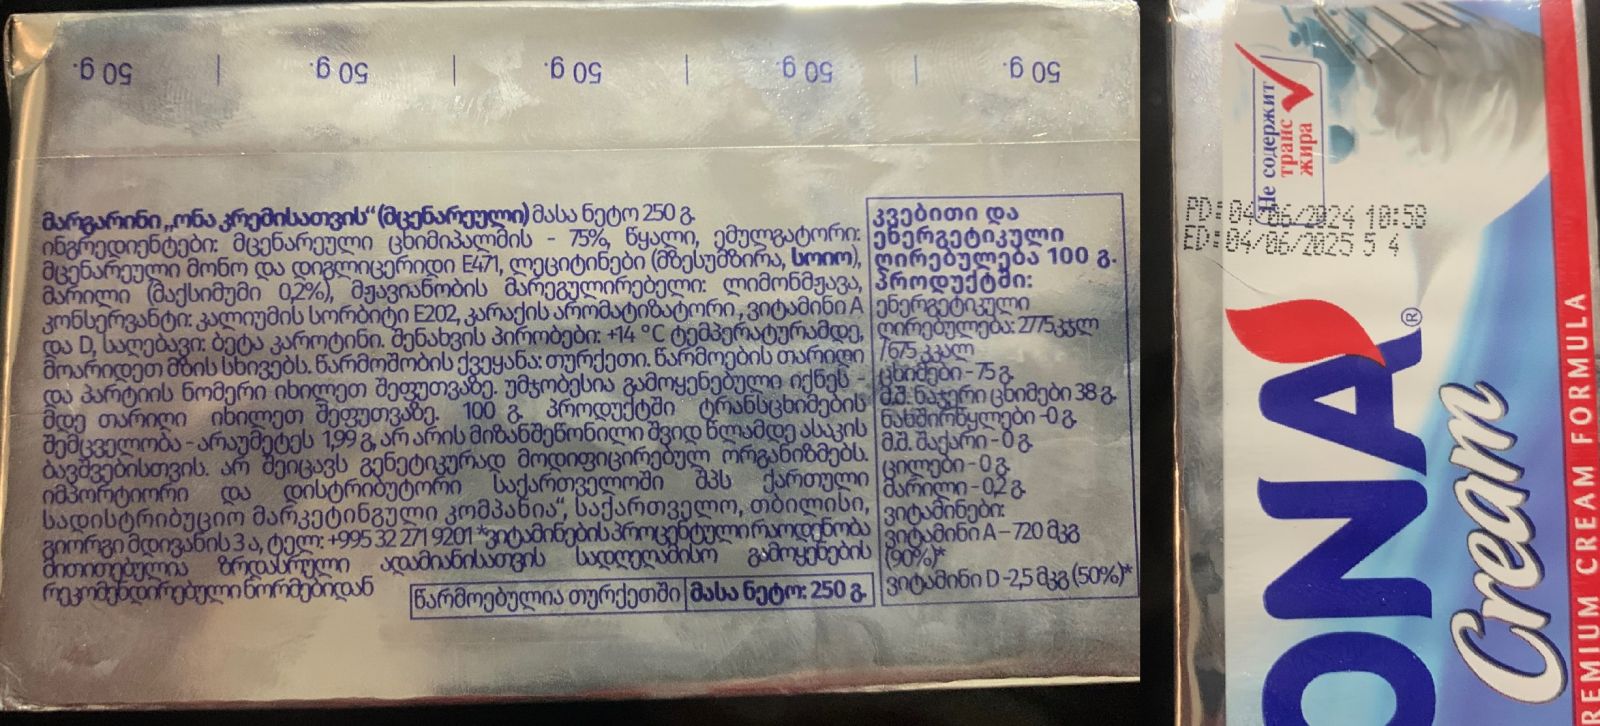 50 g. | 50 g. | 50 g. | 50 g. | 50 g.
მარგარინი „ონა კრემისათვის“ (მცენარეული) მასა ნეტო 250 გ.
ინგრედიენტები: მცენარეული ცხიმიპალმის - 75%, წყალი, ემულგატორი:
მცენარეული მონო და დიგლიცერიდი E471, ლეციტინები (მზესუმზირა, სოიო),
მარილი (მაქსიმუმი 0,2%), მჟავიანობის მარეგულირებელი: ლიმონმჟავა,
კონსერვანტი: კალიუმის სორბიტი E202, კარაქის არომატიზატორი, ვიტამინი A
და D, საღებავი: ბეტა კაროტინი. შენახვის პირობები: +14 °C ტემპერატურამდე,
მოარიდეთ მზის სხივებს. წარმოშობის ქვეყანა: თურქეთი. წარმოების თარიღი
და პარტიის ნომერი იხილეთ შეფუთვაზე. უმჯობესია გამოყენებული იქნეს -
მდე თარიღი იხილეთ შეფუთვაზე. 100 გ. პროდუქტში ტრანსცხიმების
შემცველობა - არაუმეტეს 1,99 გ, არ არის მიზანშეწონილი შვიდ წლამდე ასაკის
ბავშვებისთვის. არ შეიცავს გენეტიკურად მოდიფიცირებულ ორგანიზმებს.
იმპორტიორი და დისტრიბუტორი საქართველოში შპს ქართული
სადისტრიბუციო მარკეტინგული კომპანია“, საქართველო, თბილისი,
გიორგი მდივანის 3 ა, ტელ: +995 32 271 9201 *ვიტამინების პროცენტული რაოდენობა
მითითებულია ზრდასრული ადამიანისათვის სადღეღამისო გამოყენების
რეკომენდირებული ნორმებიდან
წარმოებულია თურქეთში | მასა ნეტო: 250 გ.
კვებითი და
ენერგეტიკული
ღირებულება 100 გ.
პროდუქტში:
ენერგეტიკული
ღირებულება: 2775კჯლ
/675 კკალ
ცხიმები - 75 გ.
მ.შ. ნაჯერი ცხიმები 38 გ.
ნახშირწყლები -0 გ.
მ.შ. შაქარი - 0 გ.
ცილები - 0 გ.
მარილი - 0,2 გ.
ვიტამინები:
ვიტამინი A – 720 მკგ
(90%)*
ვიტამინი D -2,5 მკგ (50%)*
Не содержит
транс
жира
PD: 04/06/2024 10:58
ED: 04/06/2025 5 4
ONA®
Cream
REMIUM CREAM FORMULA